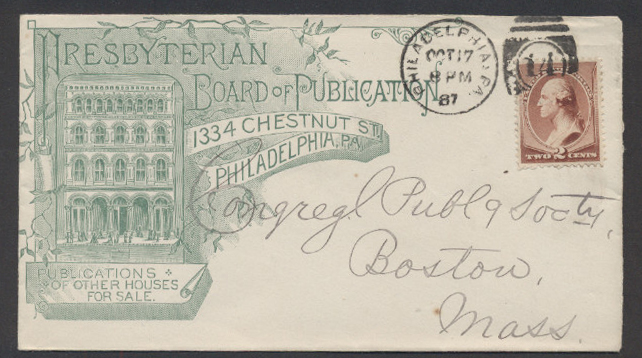 PRESBYTERIAN
BOARD OF PUBLICATION
1334 CHESTNUT ST.
PHILADELPHIA, PA.
PUBLICATIONS
OF OTHER HOUSES
FOR SALE.
PHILADELPHIA, PA.
OCT 17
8 PM
87
14
TWO 2 CENTS
Congregl Publg Socty,
Boston,
Mass.